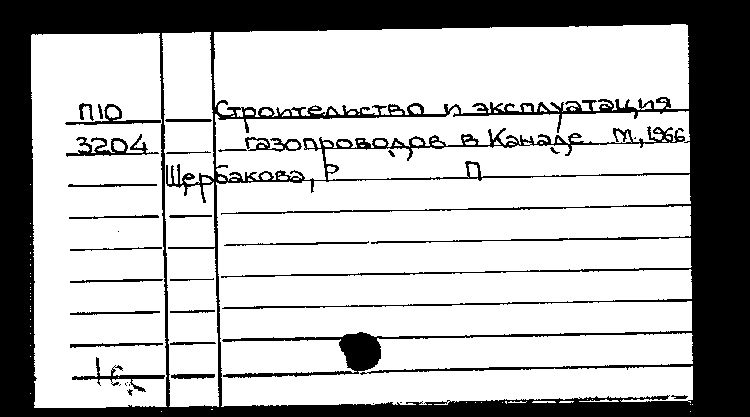 П10 Строительство и эксплуатация
3204 газопроводов в Канаде. М., 1966
Щербакова, Р П